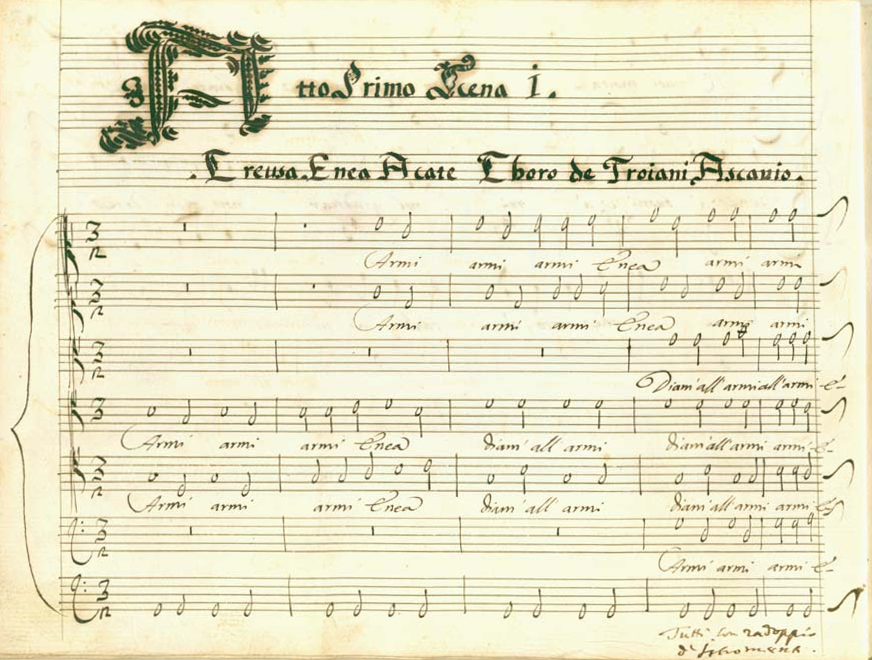 Atto Primo Scena i.
. Creusa. Enea Acate Choro de Troiani Ascanio.
3
2
Armi armi armi Enea armi armi
3
2
Armi armi armi Enea armi armi
3
2
Diam' all' armi all' armi e-
3
Armi armi armi Enea diam' all' armi diam' all' armi armi e-
Armi armi armi Enea diam' all' armi diam' all' armi armi e-
3
2
Armi armi armi e-
3
2
Tutti con radoppio